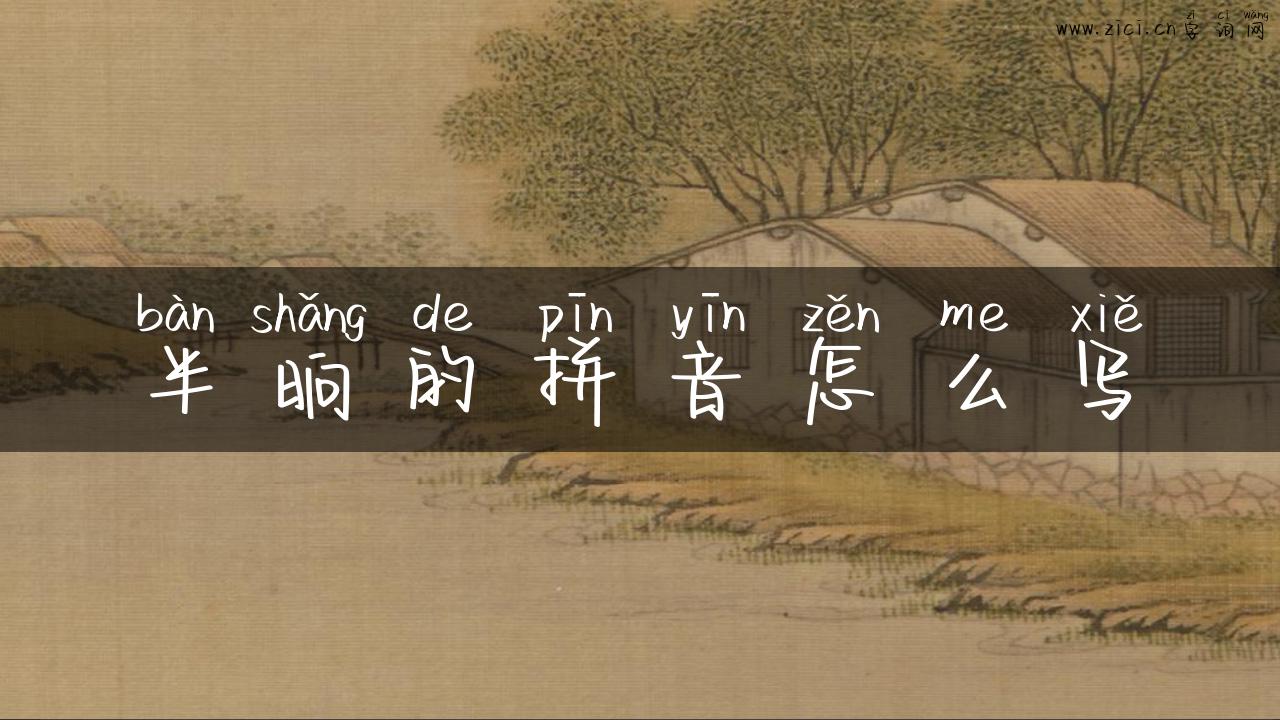 zì cí wǎng
www.zici.cn字词网
bàn shǎng de pīn yīn zěn me xiě
半晌的拼音怎么写